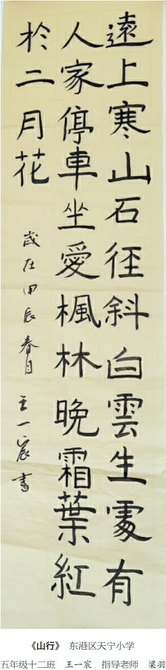 遠上寒山石徑斜白雲生處有
人家停車坐愛楓林晚霜葉紅
於二月花
歲在甲辰春月
王一宸書
《山行》 东港区天宁小学
五年级十二班 王一宸 指导老师 梁羽